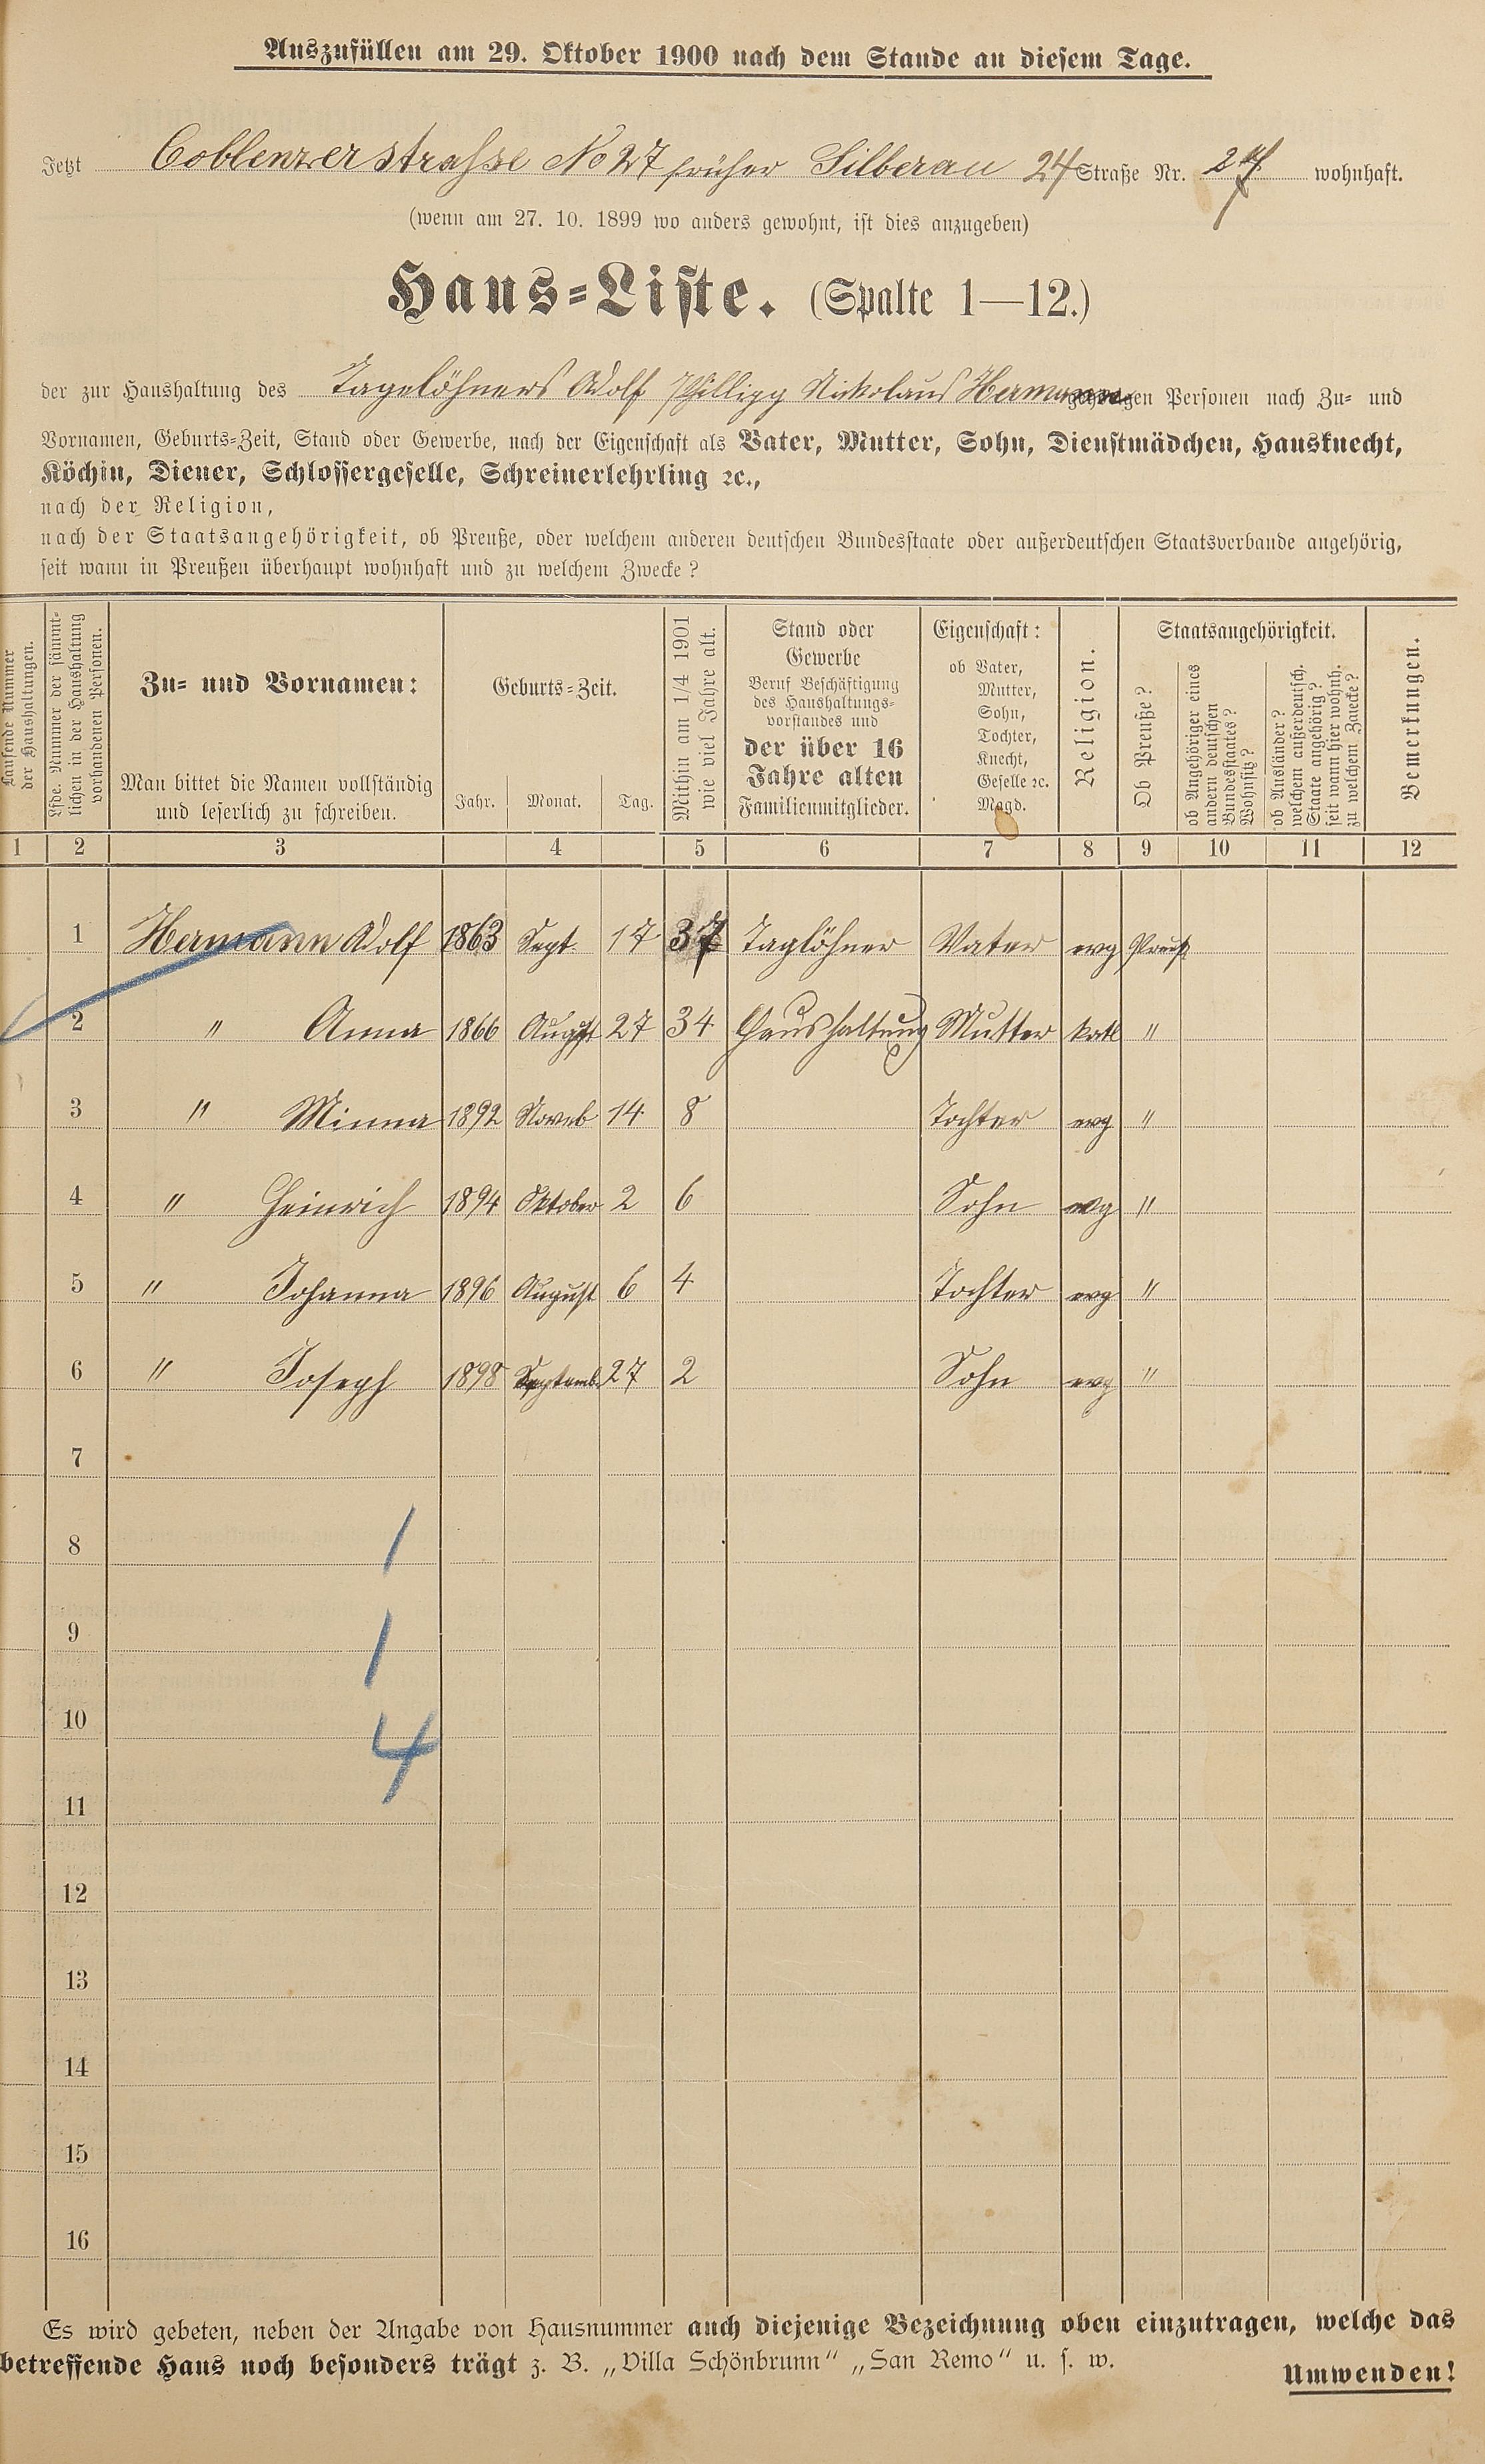 Auszufüllen am 29. Oktober 1900 nach dem Stande an diesem Tage.
Jetzt Coblenzerstrasse No 27 früher Silberau 24 Straße Nr. 27 wohnhaft.
(wenn am 27. 10. 1899 wo anders gewohnt, ist dies anzugeben)
Haus-Liste. (Spalte 1—12.)
der zur Haushaltung des Tagelöhners Adolf Phillipp Nickolaus Hermann gehörigen Personen nach Zu- und
Vornamen, Geburts-Zeit, Stand oder Gewerbe, nach der Eigenschaft als Vater, Mutter, Sohn, Dienstmädchen, Hausknecht,
Köchin, Diener, Schlossergeselle, Schreinerlehrling ꝛc.,
nach der Religion,
nach der Staatsangehörigkeit, ob Preuße, oder welchem anderen deutschen Bundesstaate oder außerdeutschen Staatsverbande angehörig,
seit wann in Preußen überhaupt wohnhaft und zu welchem Zwecke?
Laufende Nummer der Haushaltungen.
Lfde. Nummer der sämmtlichen in der Haushaltung vorhandenen Personen.
Zu- und Vornamen:
Man bittet die Namen vollständig
und leserlich zu schreiben.
Geburts-Zeit.
Jahr. Monat. Tag.
Mithin am 1/4 1901 wie viel Jahre alt.
Stand oder
Gewerbe
Beruf Beschäftigung
des Haushaltungs-
vorstandes und
der über 16
Jahre alten
Familienmitglieder.
Eigenschaft:
ob Vater,
Mutter,
Sohn,
Tochter,
Knecht,
Geselle ꝛc.
Magd.
Religion.
Staatsangehörigkeit.
Ob Preuße?
ob Angehöriger eines andern deutschen Bundesstaates? Wohnsitz?
ob Ausländer? welchem außerdeutsch. Staate angehörig? seit wann hier wohnh. zu welchem Zwecke?
Bemerkungen.
1 2 3 4 5 6 7 8 9 10 11 12
1 Hermann Adolf 1863 Sept. 17 37 Taglöhner Vater evg Preuß
2 " Anna 1866 August 27 34 Haushaltung Mutter katl "
3 " Minna 1892 Novmb 14 8 Tochter evg "
4 " Heinrich 1894 Oktober 2 6 Sohn evg "
5 " Johanna 1896 August 6 4 Tochter evg "
6 " Joseph 1898 Septemb. 27 2 Sohn evg "
7
8 1
9 1
10 4
11
12
13
14
15
16
Es wird gebeten, neben der Angabe von Hausnummer auch diejenige Bezeichnung oben einzutragen, welche das
betreffende Haus noch besonders trägt z. B. „Villa Schönbrunn" „San Remo" u. s. w.
Umwenden!